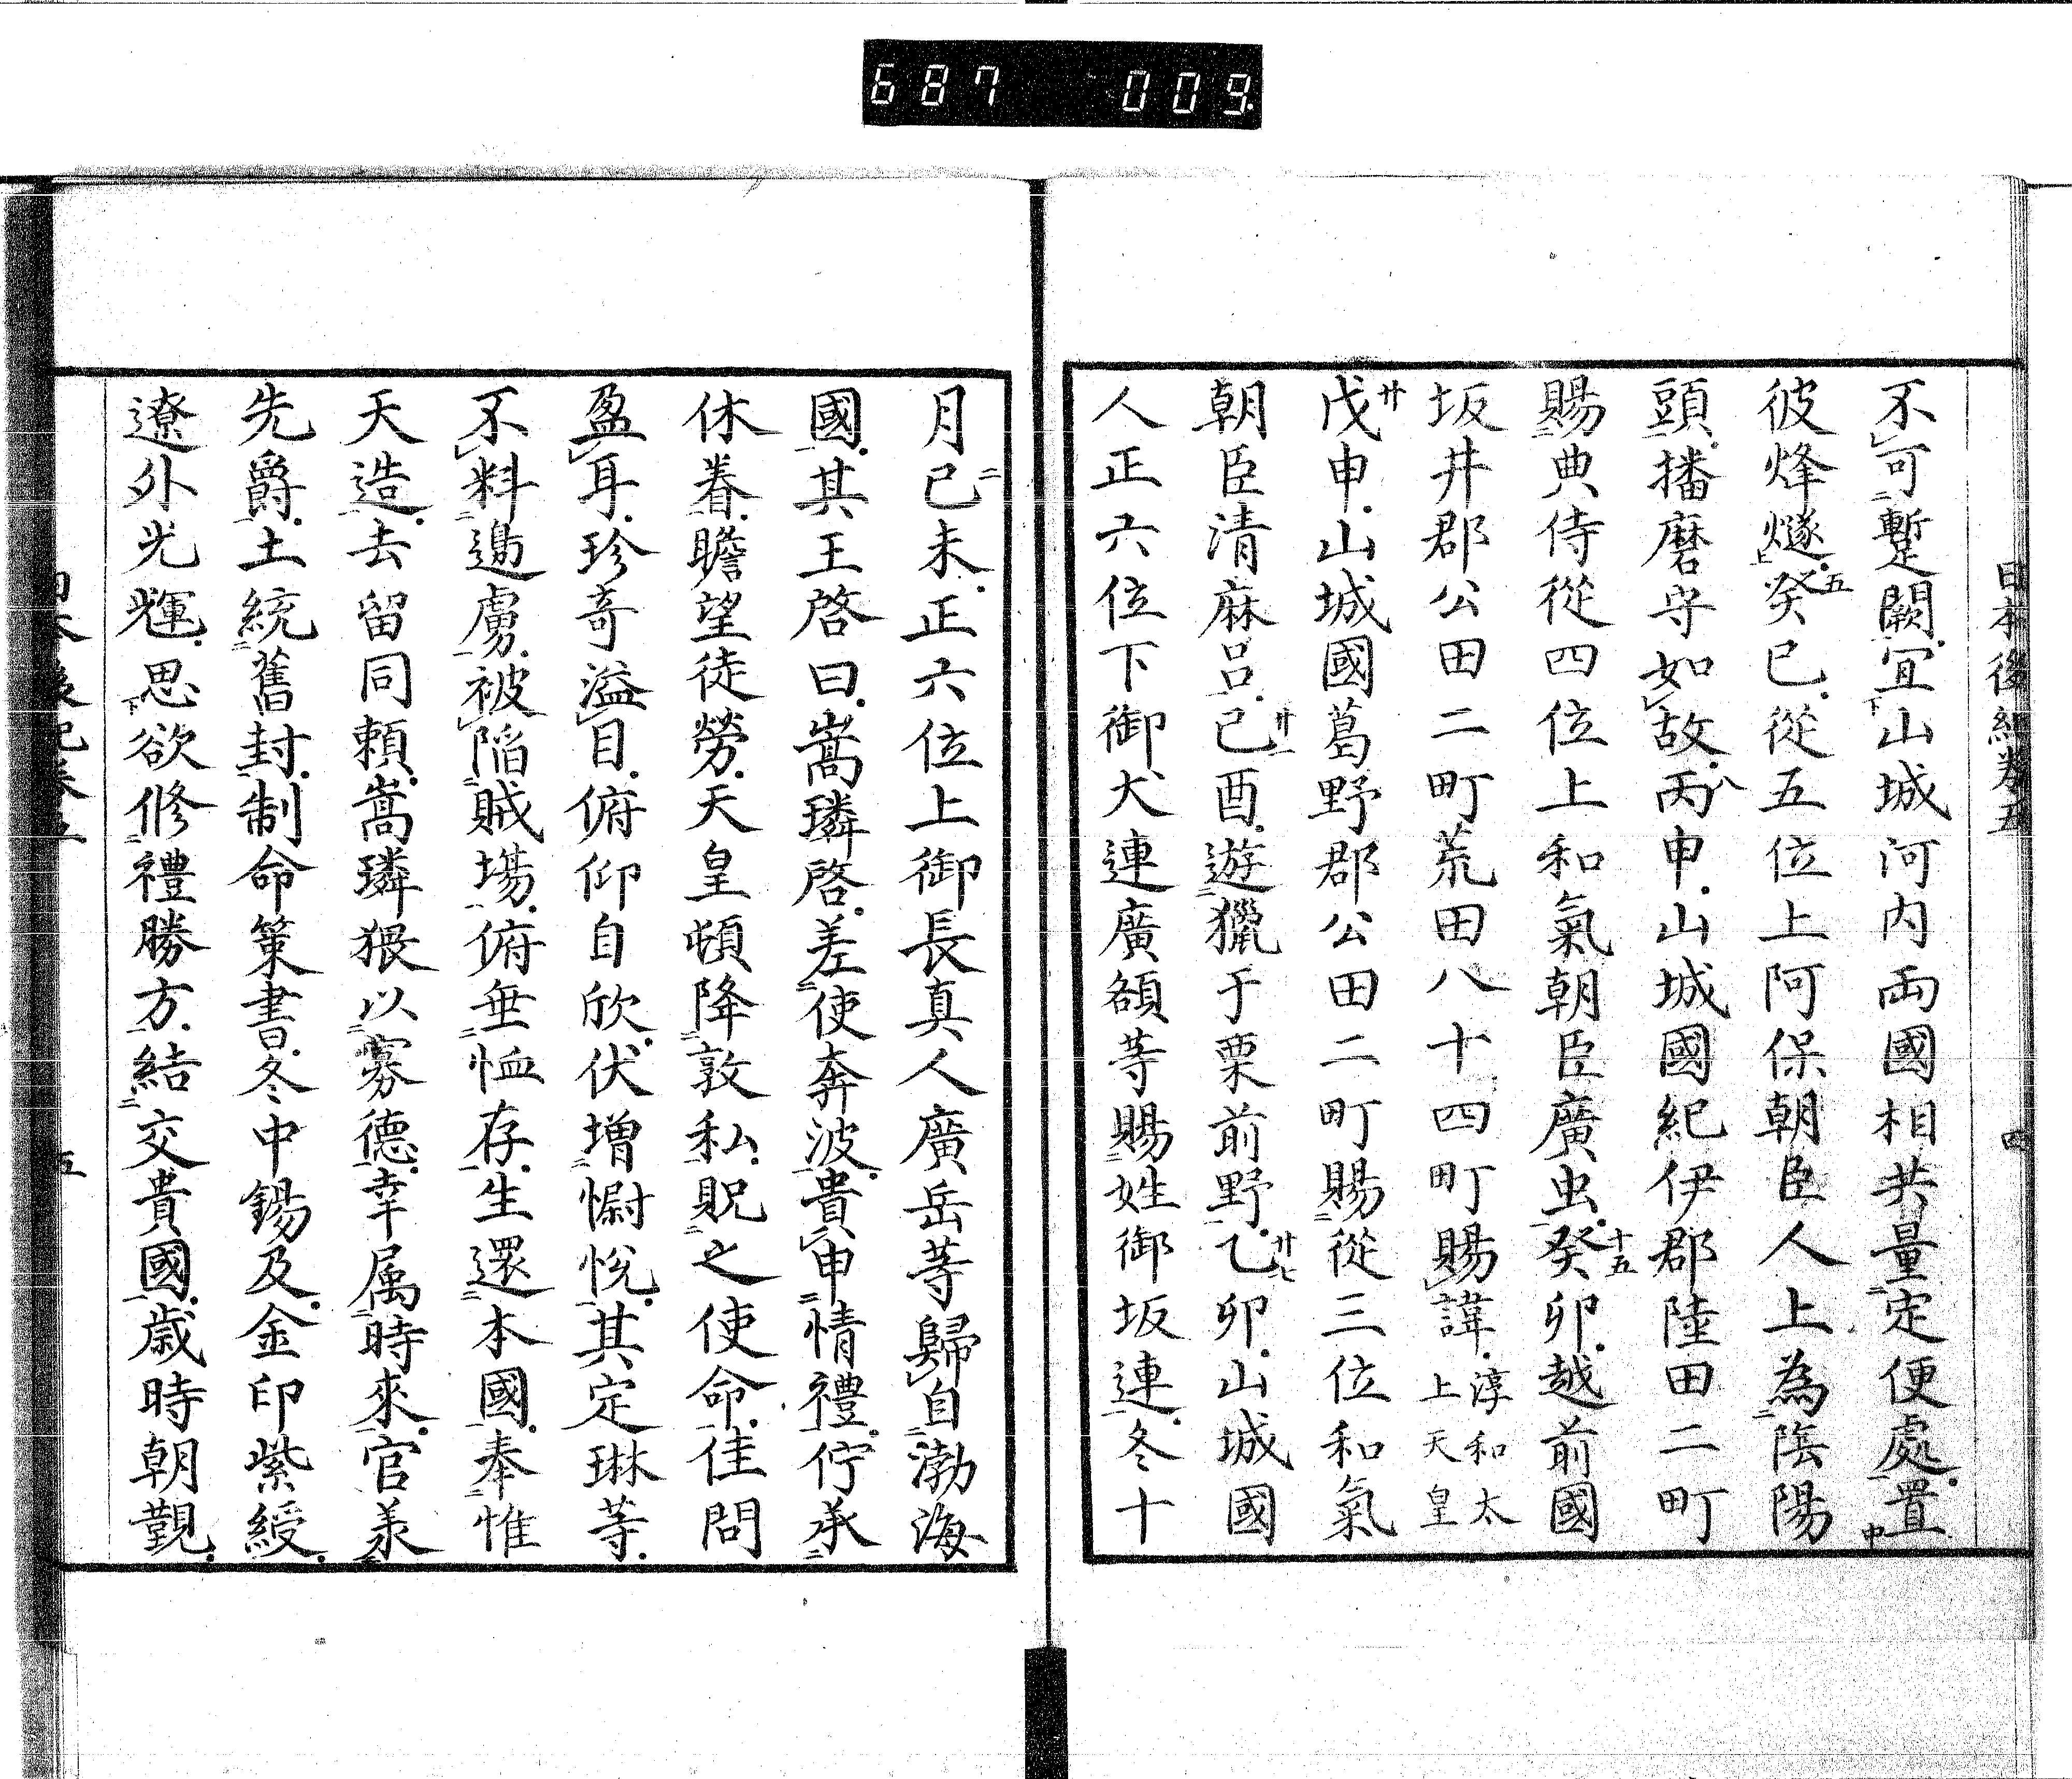 687 009
日本後紀卷五 四
不可蹔闕宜山城河内兩國相共量定便處置
彼烽燧癸巳從五位上阿保朝臣人上為陰陽
頭播磨守如故丙申山城國紀伊郡陸田二町
賜典侍從四位上和氣朝臣廣虫癸卯越前國
坂井郡公田二町荒田八十四町賜諱淳和太上天皇
戊申山城國葛野郡公田二町賜從三位和氣
朝臣清麻呂己酉遊獵于栗前野乙卯山城國
人正六位下御犬連廣額等賜姓御坂連冬十
月己未正六位上御長真人廣岳等歸自渤海
國其王啓曰嵩璘啓差使奔波貴申情禮佇承
休眷瞻望徒勞天皇頓降敦私貺之使命佳問
盈耳珍奇溢目俯仰自欣伏增慰悅其定琳等
不料邊虜被陷賊場俯垂恤存生還本國奉惟
天造去留同賴嵩璘猥以寡德幸属時來官羕
先爵土統舊封制命策書冬中錫及金印紫綬
遼外光輝思欲修禮勝方結交貴國歲時朝覲
日本後紀卷五 五